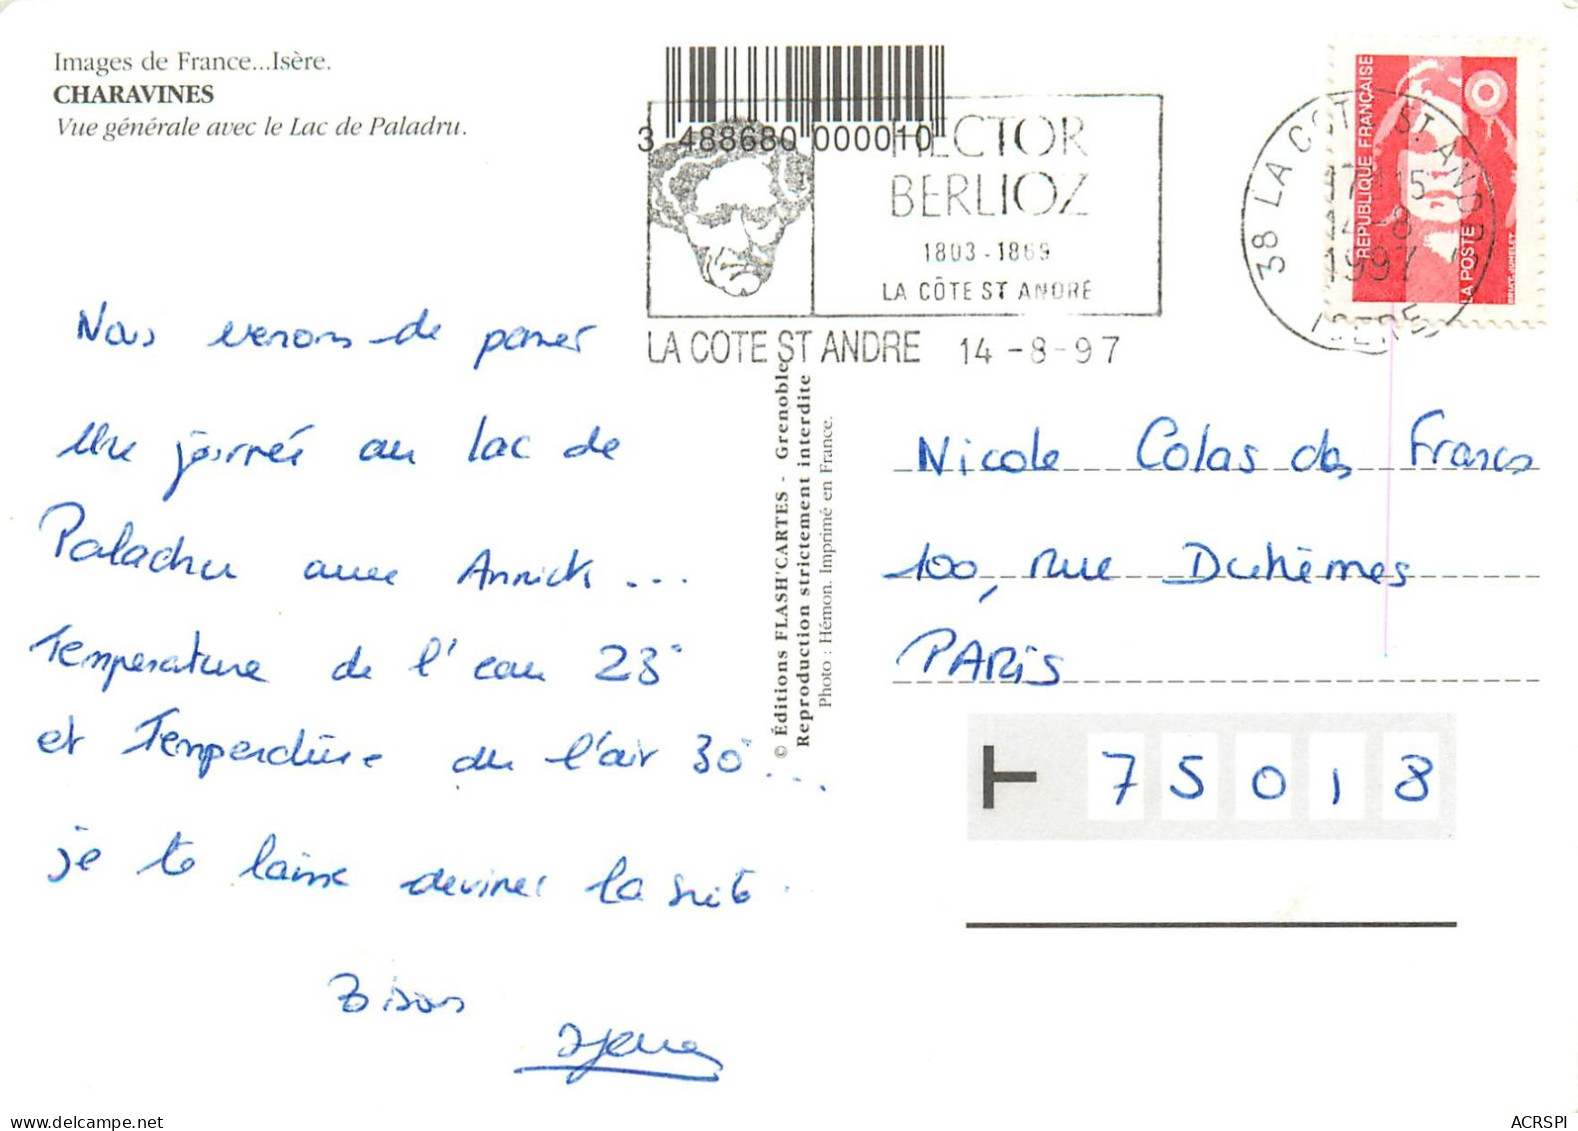 Images de France...Isère.
CHARAVINES
Vue générale avec le Lac de Paladru.
3 488680 000010
HECTOR
BERLIOZ
1803-1869
LA CÔTE ST ANDRÉ
LA COTE ST ANDRE 14-8-97
38 LA COTE ST ANDRE
17H15
14-8
1997
ISERE
RÉPUBLIQUE FRANÇAISE
LA POSTE
Nous venons de passer
une journée au lac de
Paladru avec Annick...
Température de l'eau 23°
et Température de l'air 30°...
je te laisse deviner la suite.
Bisous
© Éditions FLASH'CARTES - Grenoble
Reproduction strictement interdite
Photo : Hémon. Imprimé en France.
Nicole Colas des Francs
100, rue Duhèmes
PARIS
75018
ACRSPI